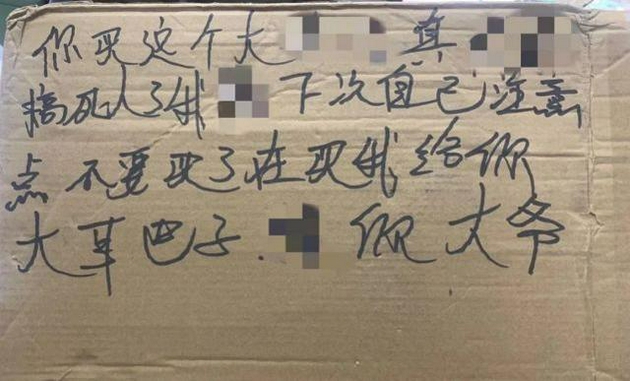 你买这个大 真
搞死人了我 下次自己注意
点不要买了在买我给你
大 巴子 你大爷